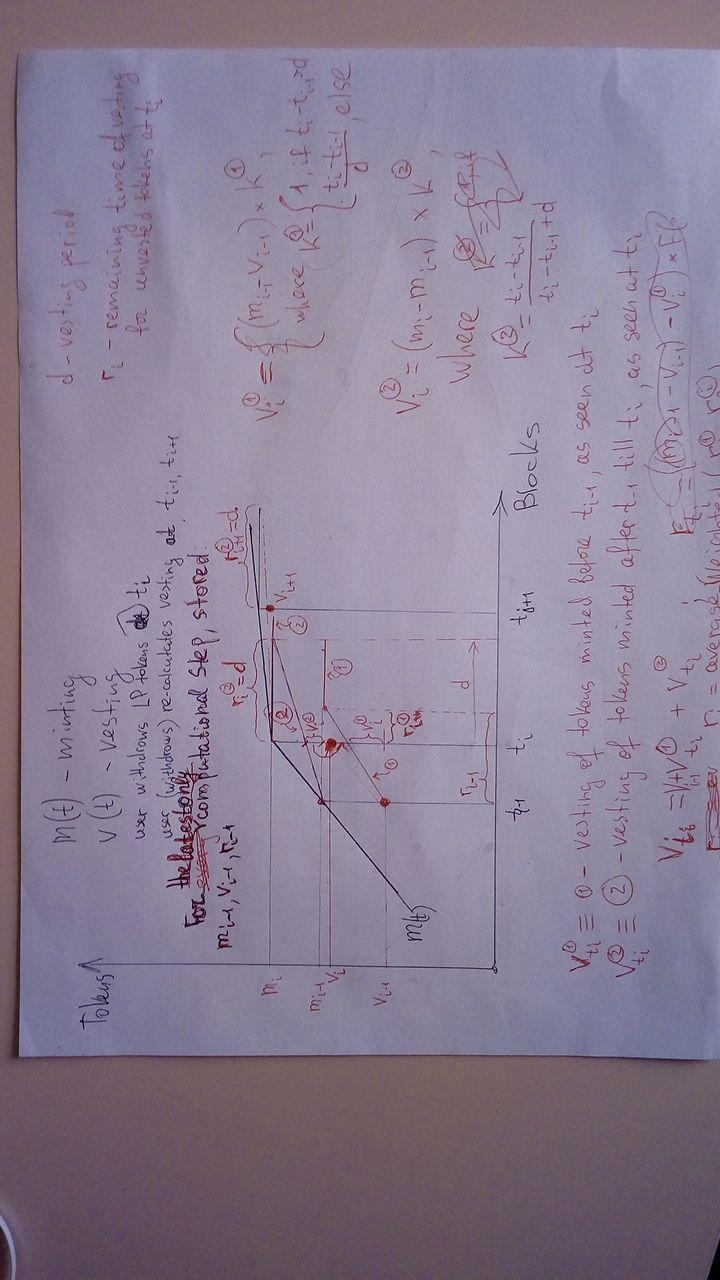 Tokens
M(t) - minting
V(t) - vesting
user withdraws LP tokens at ti
user (withdraws) re-calculates vesting at ti-1, ti+1
For the latest only computational step, stored:
mi-1, Vi-1, ri-1
d - vesting period
ri - remaining time of vesting
for unvested tokens at ti
mi
mi-1
Vi
Vi-1
M(t)
ri② = d
ri+1② = d
②
②
①
①
Vi+1
ri-1
d
ti-1
ti
ti+1
Blocks
Vi① = { (mi-1 - Vi-1) × K①,
where K① = { 1, if ti - ti-1 > d
ti - ti-1 / d, else
Vi② = (mi - mi-1) × K②,
where
K② = ti - ti-1 / ti - ti-1 + d
Vti① ≡ ① - vesting of tokens minted before ti-1, as seen at ti
Vti② ≡ ② - vesting of tokens minted after t-1 till ti, as seen at ti
Vti = Vi-1 + Vti① + Vti②
ri = average weighted (r①, r②),